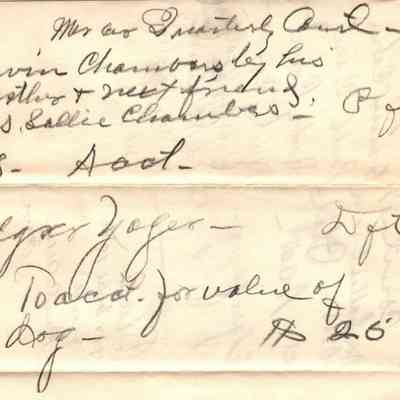 Mercer Quarterly Court -
vin Chambers by his
mother & next friend,
s. Sallie Chambers - Pf
s. Acct -
Yager - Dft
To acct. for value of
Dog - $ 25